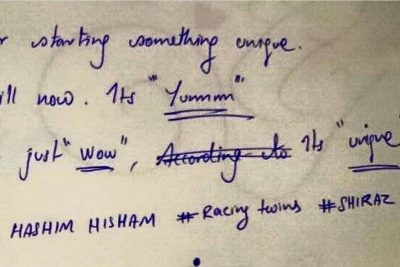 r starting something unique.
ill now. Its "Yummm"
just "Wow", According to Its "unique"
HASHIM HISHAM #Racing twins #SHIRAZ